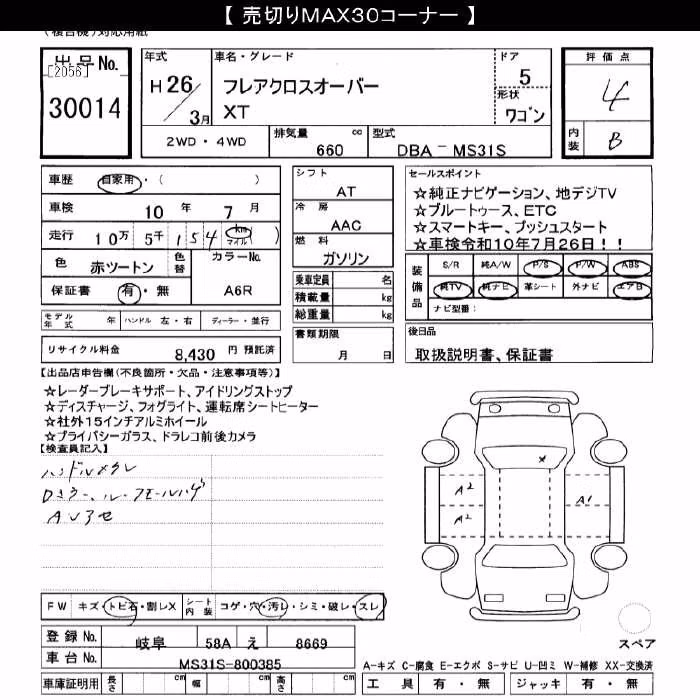 【 売切りMAX30コーナー 】
(複合機)対応用紙
出品No.
[2056]
30014
年式
H26/3月
車名・グレード
フレアクロスオーバー
XT
ドア
5
形状
ワゴン
評価点
4
内装
B
2WD・4WD
排気量 cc
660
型式
DBA－MS31S
車歴 自家用・( )
車検 10年 7月
走行 10万 5千 154 km マイル ( )
色 赤ツートン
色替
カラーNo.
A6R
保証書 有・無
モデル年式 年 ハンドル 左・右 ディーラー・並行
リサイクル料金 8,430 円 預託済
シフト
AT
冷房
AAC
燃料
ガソリン
乗車定員 名
積載量 kg
総重量 kg
書類期限
月 日
セールスポイント
☆純正ナビゲーション、地デジTV
☆ブルートゥース、ETC
☆スマートキー、プッシュスタート
☆車検令和10年7月26日！！
装備品
S/R 純A/W P/S P/W ABS
純TV 純ナビ 革シート 外ナビ エアB
ナビ型番：
後日品
取扱説明書、保証書
【出品店申告欄(不良箇所・欠品・注意事項等)】
☆レーダーブレーキサポート、アイドリングストップ
☆ディスチャージ、フォグライト、運転席シートヒーター
☆社外15インチアルミホイール
☆プライバシーガラス、ドラレコ前後カメラ
【検査員記入】
ハンドルスレ
X
A2
A2
A1
FW キズ・トビ石・割レX
シート内装 コゲ・穴・汚レ・シミ・破レ・スレ
登録No. 岐阜 58A え 8669
車台No. MS31S-800385
車庫証明用 長さ cm 幅 cm 高さ cm
スペア
A-キズ C-腐食 E-エクボ S-サビ U-凹ミ W-補修 XX-交換済
工具 有・無 ジャッキ 有・無